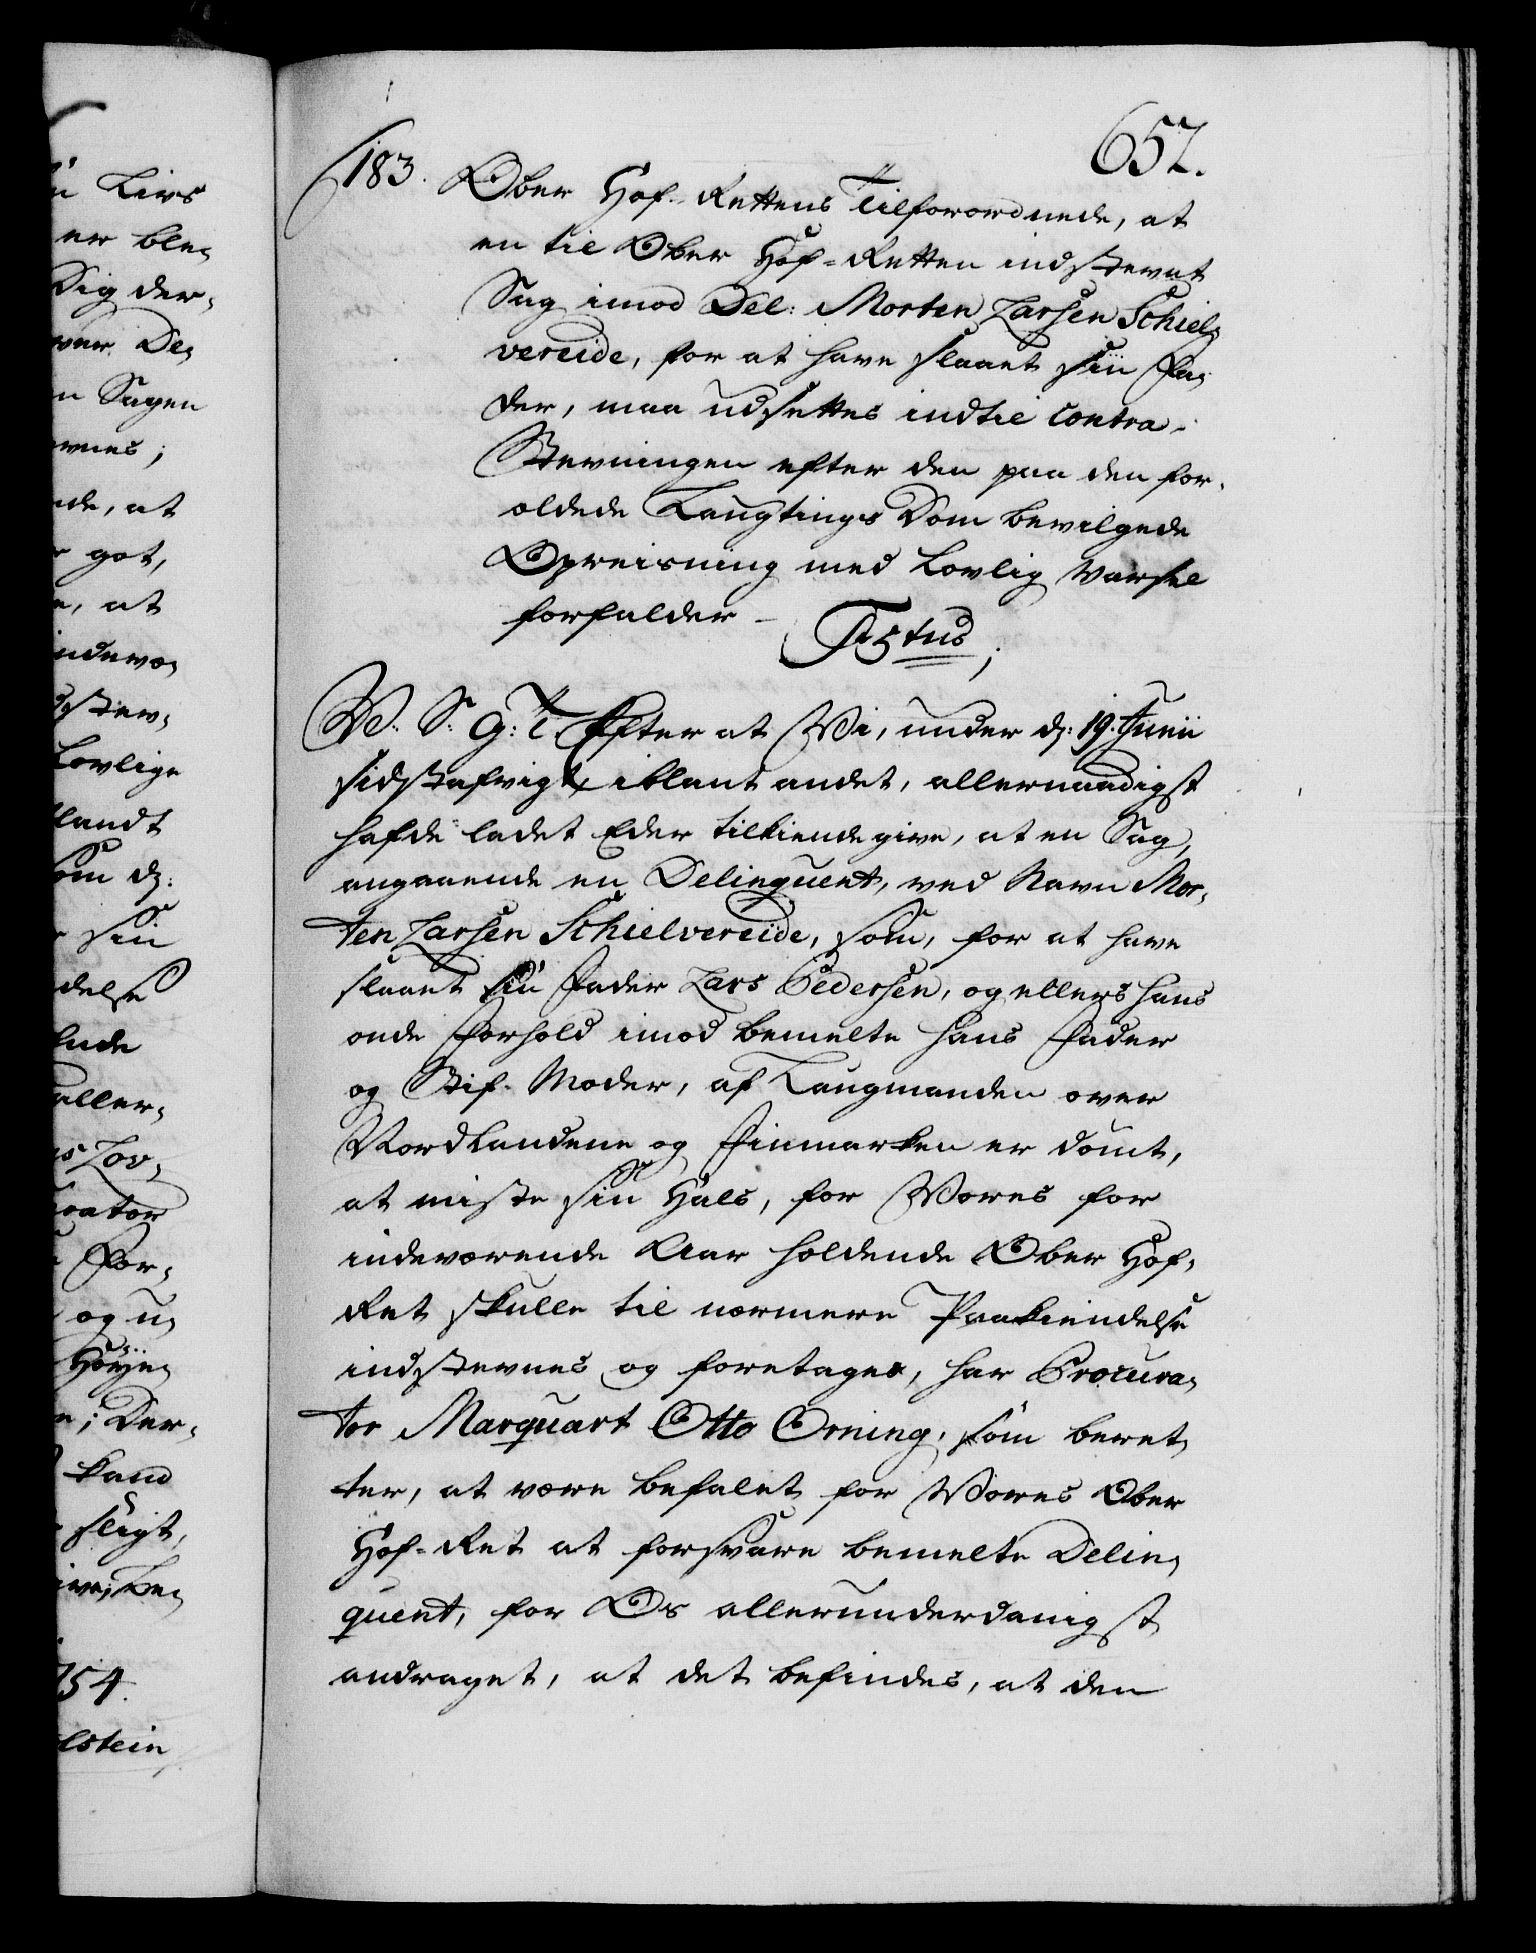 652.
183. Ober Hof-Rettens Tilforordnede, at
en til Ober Hof-Retten indstevnt
Sag imod Del: Morten Larsen Schiel-
vereide, for at have slaaet sin Fa-
der, maa udsettes indtil Contra-
Stevningen efter den paa den for-
oldede Laugtings Dom bevilgede
Opreisning med Lovlig Varsel
forfalder –
W. S: G: T. Efter at Vi, under d: 19. Junii
sidstafvigt iblant andet, allernaadigst
hafde ladet Eder tilkiendegive, at en Sag,
angaaende en Delinquent, ved Navn Mor-
ten Larsen Schielvereide, som, for at have
slaaet sin Fader Lars Pedersen, og ellers hans
onde Forhold imod bemelte hans Fader
og Stif-Moder, af Laugmanden over
Nordlandene og Finmarken er dömt,
at miste sin Hals, for Vores for
indeværende Aar holdende Ober Hof-
Ret skulle til nærmere Paakiendelse
indstevnes og foretages, har Procura-
tor Marquart Otto Orning, som beret-
ter, at være befalet for Vores Ober
Hof-Ret at forsvare bemelte Delin-
quent, for Os allerunderdanigst
andraget, at det befindes, at den
Livs
er ble-
Sig der-
De-
Sagen
at
got,
at
Lovlige
landt
d:
sin
delse
aller-
Lov-
For-
og u-
Der-
kand
sligt,
754.
lstein